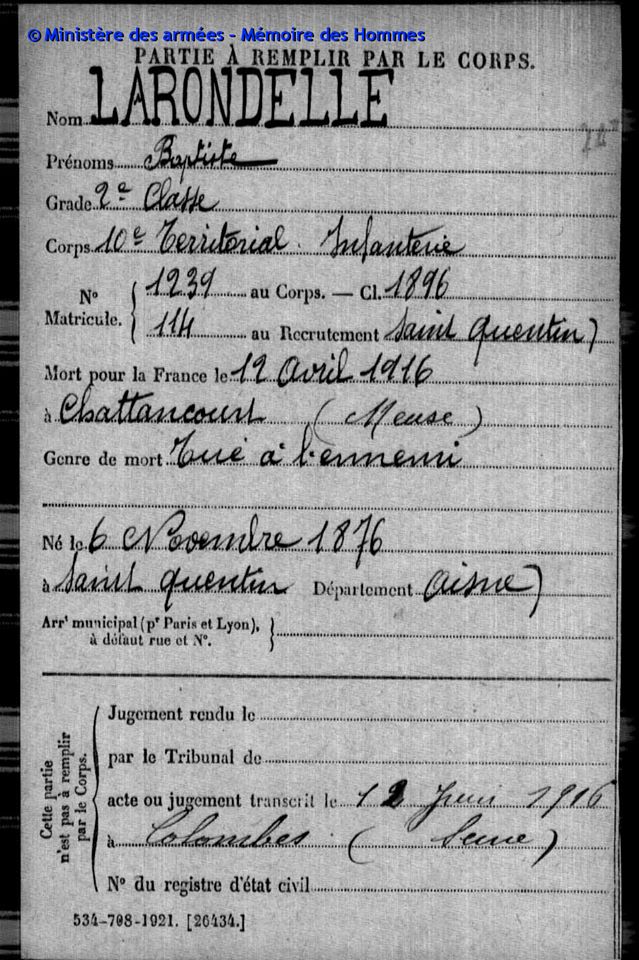 © Ministère des armées - Mémoire des Hommes
PARTIE À REMPLIR PAR LE CORPS.
Nom LARONDELLE
Prénoms Baptiste
Grade 2e Classe
Corps 10e Territorial Infanterie
No Matricule. { 1239 au Corps. — Cl. 1896
114 au Recrutement Saint Quentin )
Mort pour la France le 12 Avril 1916
à Chattancourt (Meuse)
Genre de mort Tué à l'ennemi
Né le 6 Novembre 1876
à Saint Quentin Département Aisne )
Arrt municipal (pr Paris et Lyon), }
à défaut rue et No.
Cette partie
n'est pas à remplir
par le Corps.
Jugement rendu le
par le Tribunal de
acte ou jugement transcrit le 12 Juin 1916
à Colombes (Seine)
No du registre d'état civil
534-708-1921. [26434.]